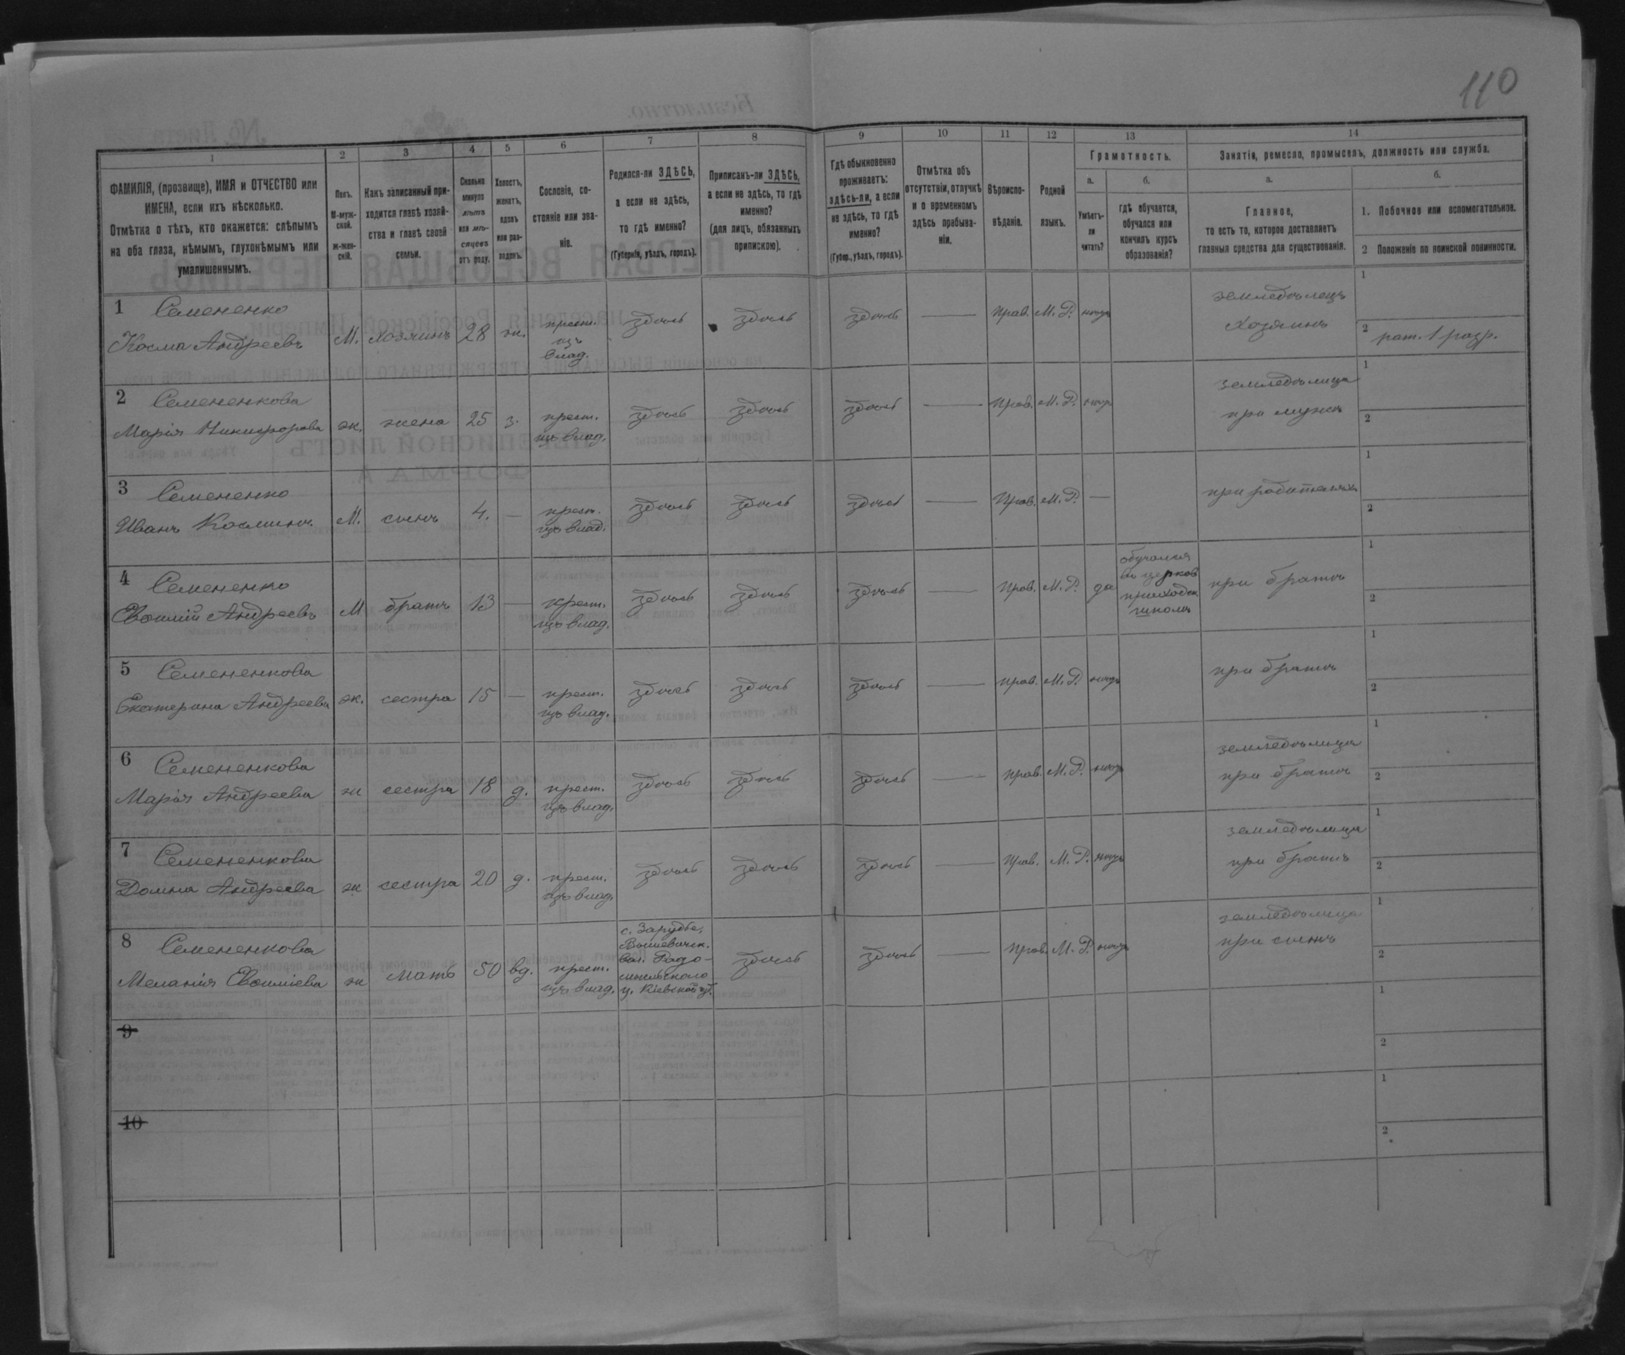 110
1 2 3 4 5 6 7 8 9 10 11 12 13 14
ФАМИЛІЯ, (прозвище), ИМЯ и ОТЧЕСТВО или
ИМЕНА, если ихъ нѣсколько.
Отмѣтка о тѣхъ, кто окажется: слѣпымъ
на оба глаза, нѣмымъ, глухонѣмымъ или
умалишеннымъ.
Полъ.
М-муж-
ской.
ж-жен-
скій.
Какъ записанный при-
ходится главѣ хозяй-
ства и главѣ своей
семьи.
Сколько
минуло
лѣтъ
или мѣ-
сяцевъ
отъ роду.
Холостъ,
женатъ,
вдовъ
или раз-
веденъ.
Сословіе, со-
стояніе или зва-
ніе.
Родился-ли ЗДѢСЬ,
а если не здѣсь,
то гдѣ именно?
(Губернія, уѣздъ, городъ).
Приписанъ-ли ЗДѢСЬ,
а если не здѣсь, то гдѣ
именно?
(для лицъ, обязанныхъ
припискою).
Гдѣ обыкновенно
проживаетъ:
здѣсь-ли, а если
не здѣсь, то гдѣ
именно?
(Губер., уѣздъ, городъ).
Отмѣтка объ
отсутствіи, отлучкѣ
и о временномъ
здѣсь пребыва-
ніи.
Вѣроиспо-
вѣданіе.
Родной
языкъ.
Грамотность.
а.
Умѣетъ-
ли
читать?
б.
гдѣ обучается,
обучался или
кончилъ курсъ
образованія?
Занятіе, ремесло, промыселъ, должность или служба.
а.
Главное,
то есть то, которое доставляетъ
главныя средства для существованія.
б.
1. Побочное или вспомогательное.
2 Положеніе по воинской повинности.
1 Семененко
Косма Андреевъ М. хозяинъ 28 ж. крест. изъ влад. здѣсь здѣсь здѣсь — прав. М. Р. нѣтъ земледѣлецъ хозяинъ 1
2 рат. 1 разр.
2 Семененкова
Марія Никифорова ж. жена 25 з. крест. изъ влад. здѣсь здѣсь здѣсь — прав. М. Р. нѣтъ земледѣлица при мужѣ 1
2
3 Семененко
Иванъ Косминъ М. сынъ 4. — крест. изъ влад. здѣсь здѣсь здѣсь — прав. М. Р. — при родителяхъ 1
2
4 Семененко
Евѳимій Андреевъ М братъ 13 — крест. изъ влад. здѣсь здѣсь здѣсь — прав. М. Р. да обучался въ церков приходск школѣ при братѣ 1
2
5 Семененкова
Екатерина Андреева ж. сестра 15 — крест. изъ влад. здѣсь здѣсь здѣсь — прав. М. Р. нѣтъ при братѣ 1
2
6 Семененкова
Марія Андреева ж сестра 18 д. крест. изъ влад. здѣсь здѣсь здѣсь — прав. М. Р. нѣтъ земледѣлица при братѣ 1
2
7 Семененкова
Домна Андреева ж сестра 20 д. крест. изъ влад. здѣсь здѣсь здѣсь — прав. М. Р. нѣтъ земледѣлица при братѣ 1
2
8 Семененкова
Меланія Евѳиміева ж мать 50 вд. крест. изъ влад. с. Зарудье, вол. Радо- у. Кіевской г. здѣсь здѣсь — прав. М. Р. нѣтъ земледѣлица при сынѣ 1
2
9 1
2
10 1
2